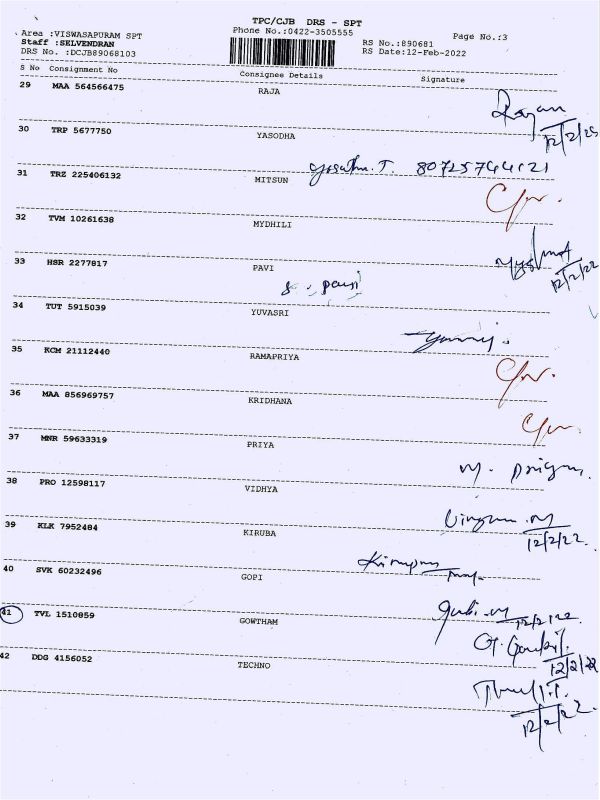 TPC/CJB DRS - SPT
Area :VISWASAPURAM SPT Phone No.:0422-3505555 Page No.:3
Staff :SELVENDRAN RS No.:890681
DRS No. :DCJB89068103 RS Date:12-Feb-2022
S No Consignment No Consignee Details Signature
29 MAA 564566475 RAJA
Rajan
12/2/22
30 TRP 5677750 YASODHA
31 TRZ 225406132 MITSUN
32 TVM 10261638 MYDHILI
12/2/22
33 HSR 2277817 PAVI
34 TUT 5915039 YUVASRI
35 KCM 21112440 RAMAPRIYA
36 MAA 856969757 KRIDHANA
37 MNR 59633319 PRIYA
38 PRO 12598117 VIDHYA
12/2/22
39 KLK 7952484 KIRUBA
40 SVK 60232496 GOPI
12/2/22
41 TVL 1510859 GOWTHAM
12/2/22
42 DDG 4156052 TECHNO
12/2/22